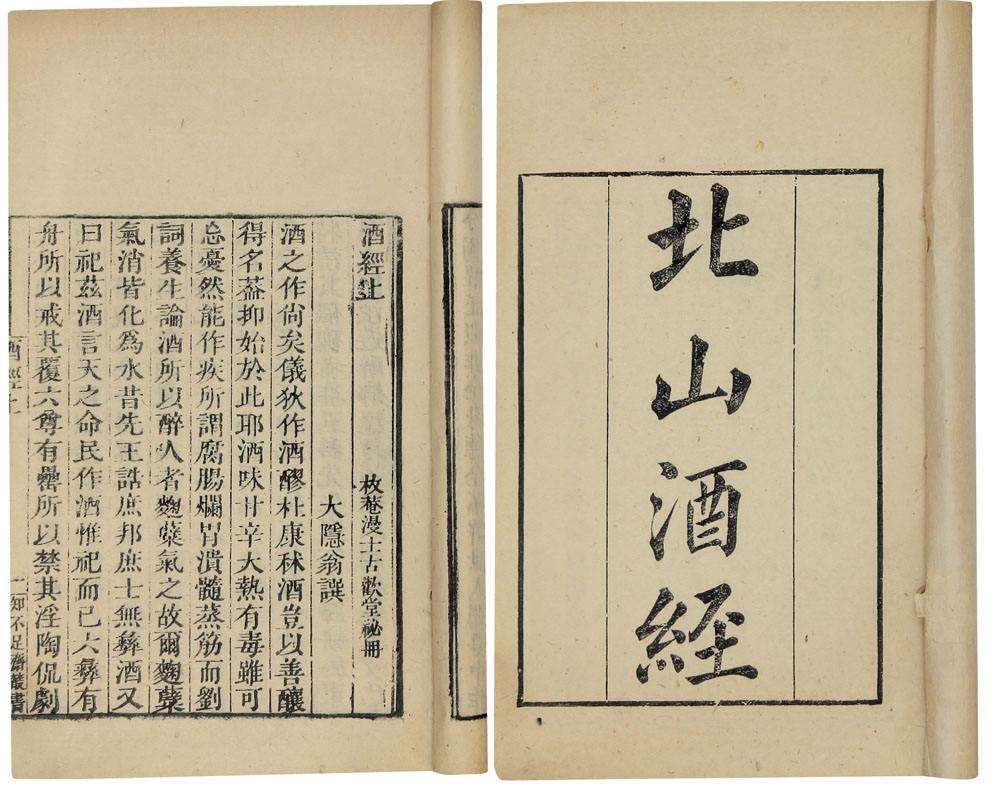 北山酒經
酒經上
枚菴漫士古歡堂祕冊
大隱翁譔
酒之作尙矣儀狄作酒醪杜康秫酒豈以善釀
得名葢抑始於此耶酒味甘辛大熱有毒雖可
忘憂然能作疾所謂腐腸爛胃潰髓蒸筋而劉
詞養生論酒所以醉人者麴糵氣之故爾麴糵
氣消皆化爲水昔先王誥庶邦庶士無彝酒又
曰祀茲酒言天之命民作酒惟祀而已六彝有
舟所以戒其覆六尊有罍所以禁其淫陶侃劇
酒經上
一知不足齋叢書